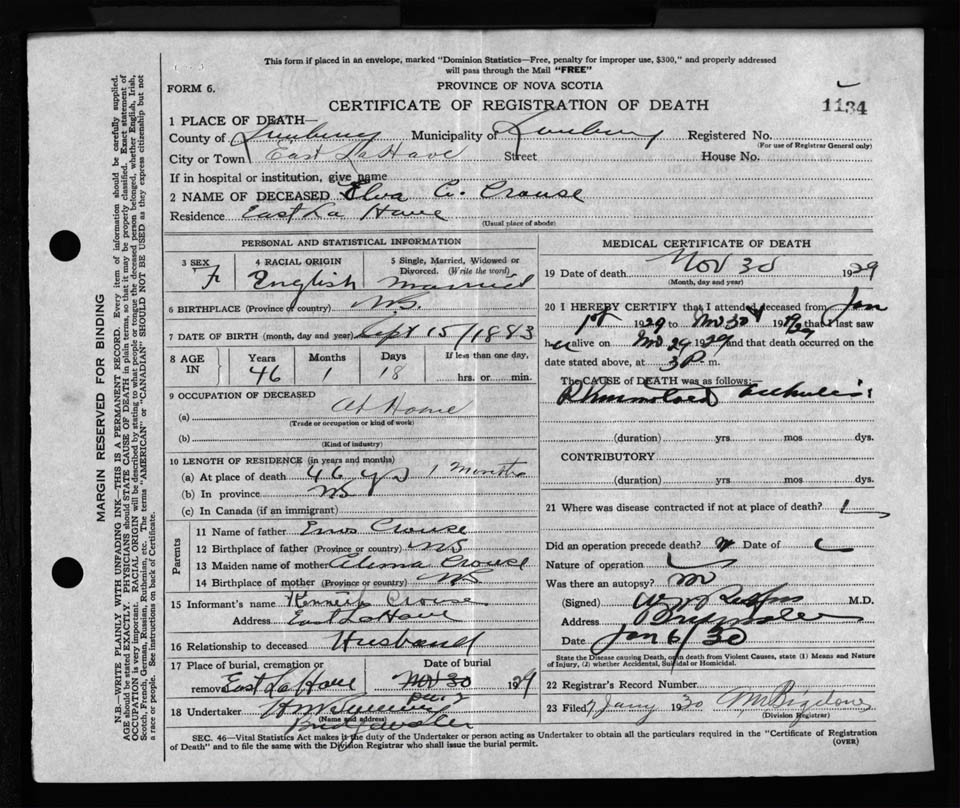 This form if placed in an envelope, marked "Dominion Statistics—Free, penalty for improper use, $300," and properly addressed
will pass through the Mail "FREE"
FORM 6.
PROVINCE OF NOVA SCOTIA
CERTIFICATE OF REGISTRATION OF DEATH
1134
1 PLACE OF DEATH—
County of Lunenburg Municipality of Lunenburg Registered No.
(For use of Registrar General only)
City or Town East LaHave Street House No.
If in hospital or institution, give name
2 NAME OF DECEASED Elva C. Crouse
Residence East La Have
(Usual place of abode)
PERSONAL AND STATISTICAL INFORMATION
3 SEX 4 RACIAL ORIGIN 5 Single, Married, Widowed or
Divorced. (Write the word)
F English Married
6 BIRTHPLACE (Province or country) N.S.
7 DATE OF BIRTH (month, day and year) Sept 15/1883
8 AGE IN Years Months Days If less than one day,
46 1 18 hrs. or min.
9 OCCUPATION OF DECEASED
(a) At Home
(Trade or occupation or kind of work)
(b)
(Kind of industry)
10 LENGTH OF RESIDENCE (in years and months)
(a) At place of death 46 yrs 1 Month
(b) In province NS
(c) In Canada (if an immigrant)
Parents
11 Name of father Enos Crouse
12 Birthplace of father (Province or country) NS
13 Maiden name of mother Crouse
14 Birthplace of mother (Province or country) NS
15 Informant's name Kenneth Crouse
Address East LaHave
16 Relationship to deceased Husband
17 Place of burial, cremation or Date of burial
removal East La Have Nov 30 1929
Dec 2
18 Undertaker
(Name and address)
Bridgewater
MEDICAL CERTIFICATE OF DEATH
19 Date of death Nov 30 1929
(Month, day and year)
20 I HEREBY CERTIFY that I attended deceased from Jan
1st 1929 to Nov 30 1929 that I last saw
her alive on Nov 29 1929 and that death occurred on the
date stated above, at 3 P. m.
The CAUSE of DEATH was as follows:—
(duration) yrs mos dys.
CONTRIBUTORY
(duration) yrs. mos. dys.
21 Where was disease contracted if not at place of death?
Did an operation precede death? Date of
Nature of operation
Was there an autopsy? no
(Signed) M.D.
Address Bridgewater
Date Jan 6/30
State the Disease causing Death, or in death from Violent Causes, state (1) Means and Nature
of Injury, (2) whether Accidental, Suicidal or Homicidal.
22 Registrar's Record Number
23 Filed 7 Jany 1930
(Division Registrar)
SEC. 46—Vital Statistics Act makes it the duty of the Undertaker or person acting as Undertaker to obtain all the particulars required in the "Certificate of Registration
of Death" and to file the same with the Division Registrar who shall issue the burial permit.
(OVER)
MARGIN RESERVED FOR BINDING
N.B.—WRITE PLAINLY WITH UNFADING INK—THIS IS A PERMANENT RECORD. Every item of information should be carefully supplied.
AGE should be stated EXACTLY. PHYSICIANS should STATE CAUSE OF DEATH in plain terms, so that it may be properly classified. Exact statement of
OCCUPATION is very important. RACIAL ORIGIN will be described by stating to what people or tongue the deceased person belonged, whether English, Irish,
Scotch, French, German, Russian, Ruthenian, etc. The terms "AMERICAN" or "CANADIAN" SHOULD NOT BE USED as they express citizenship but not
a race or people. See instructions on back of Certificate.